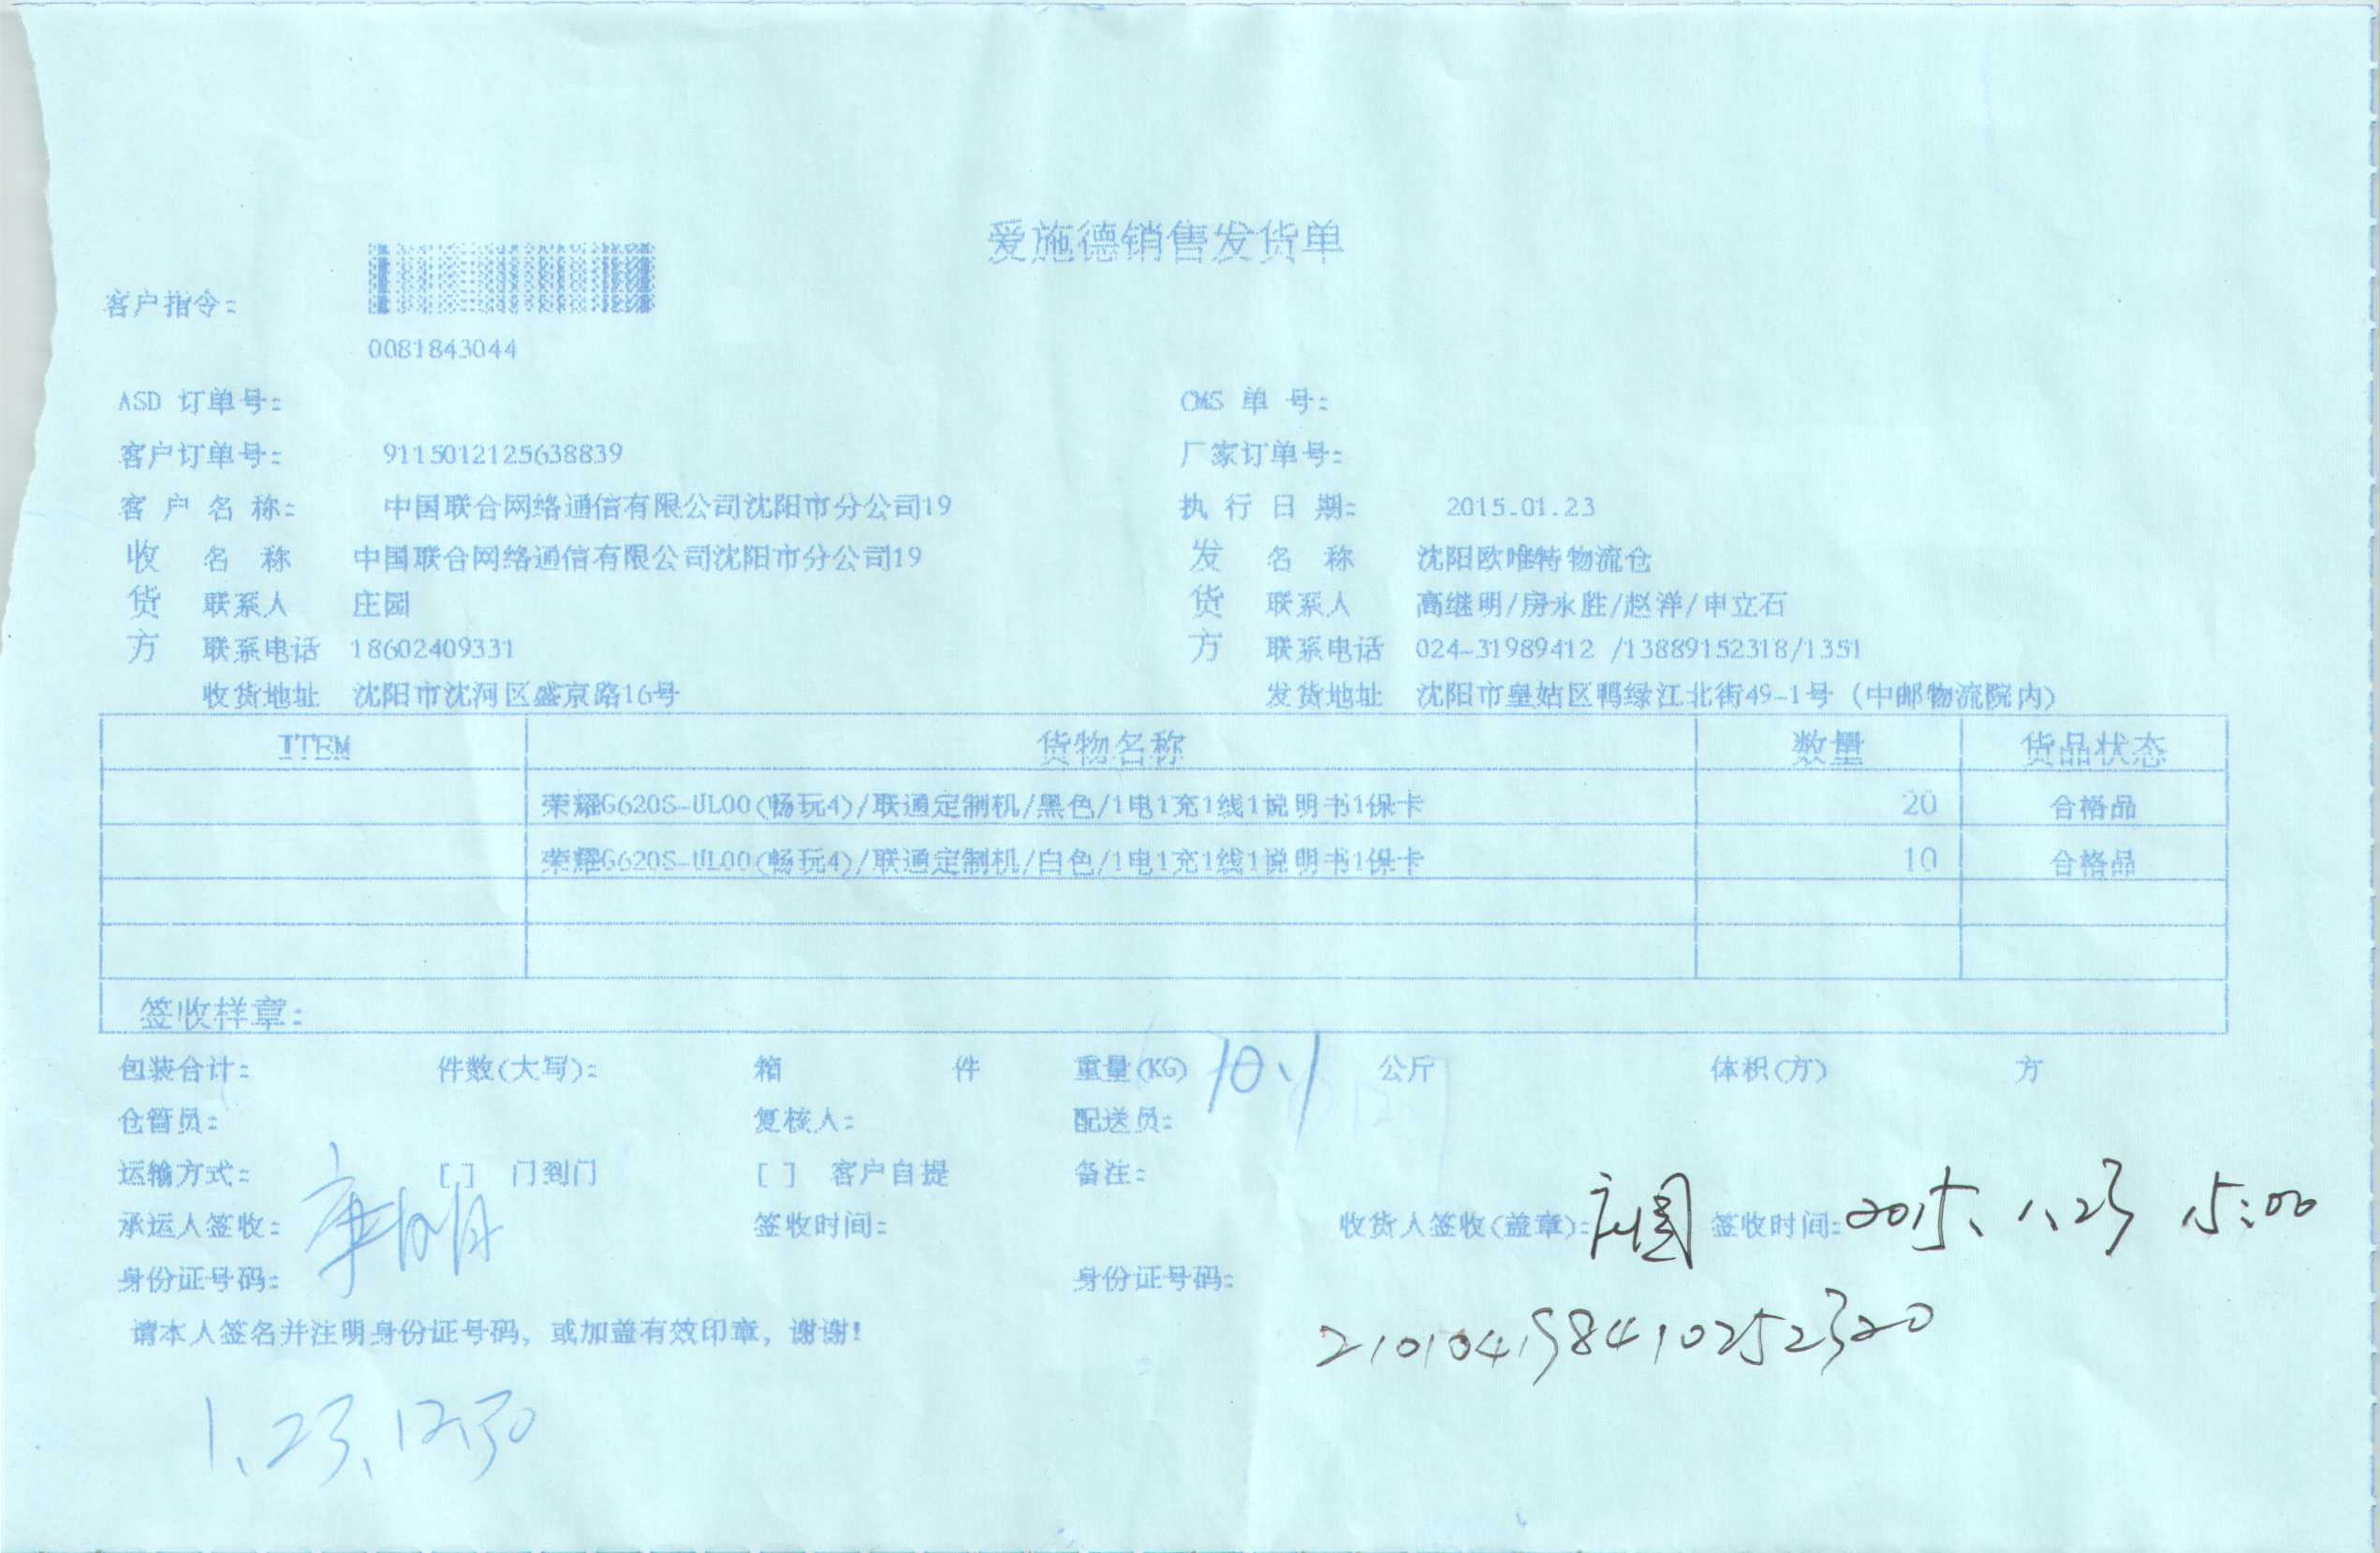 爱施德销售发货单
客户指令:
0081843044
ASD 订单号: CMS 单 号:
客户订单号: 9115012125638839 厂家订单号:
客 户 名 称: 中国联合网络通信有限公司沈阳市分公司19 执 行 日 期: 2015.01.23
收 名 称 中国联合网络通信有限公司沈阳市分公司19 发 名 称 沈阳欧唯特物流仓
货 联系人 庄园 货 联系人 高继明/房永胜/赵洋/申立石
方 联系电话 18602409331 方 联系电话 024-31989412 /13889152318/1351
收货地址 沈阳市沈河区盛京路16号 发货地址 沈阳市皇姑区鸭绿江北街49-1号 (中邮物流院内)
ITEM 货物名称 数量 货品状态
荣耀G620S-UL00(畅玩4)/联通定制机/黑色/1电1充1线1说明书1保卡 20 合格品
荣耀G620S-UL00(畅玩4)/联通定制机/白色/1电1充1线1说明书1保卡 10 合格品
签收样章:
包装合计: 件数(大写): 箱 件 重量(KG) 10.1 公斤 体积(方) 方
仓管员: 复核人: 配送员:
运输方式: [ ] 门到门 [ ] 客户自提 备注:
承运人签收: 签收时间: 收货人签收(盖章): 庄园 签收时间: 2015、1、23 15:00
身份证号码: 身份证号码:
210104198410252320
请本人签名并注明身份证号码, 或加盖有效印章, 谢谢!
1、23、12:30